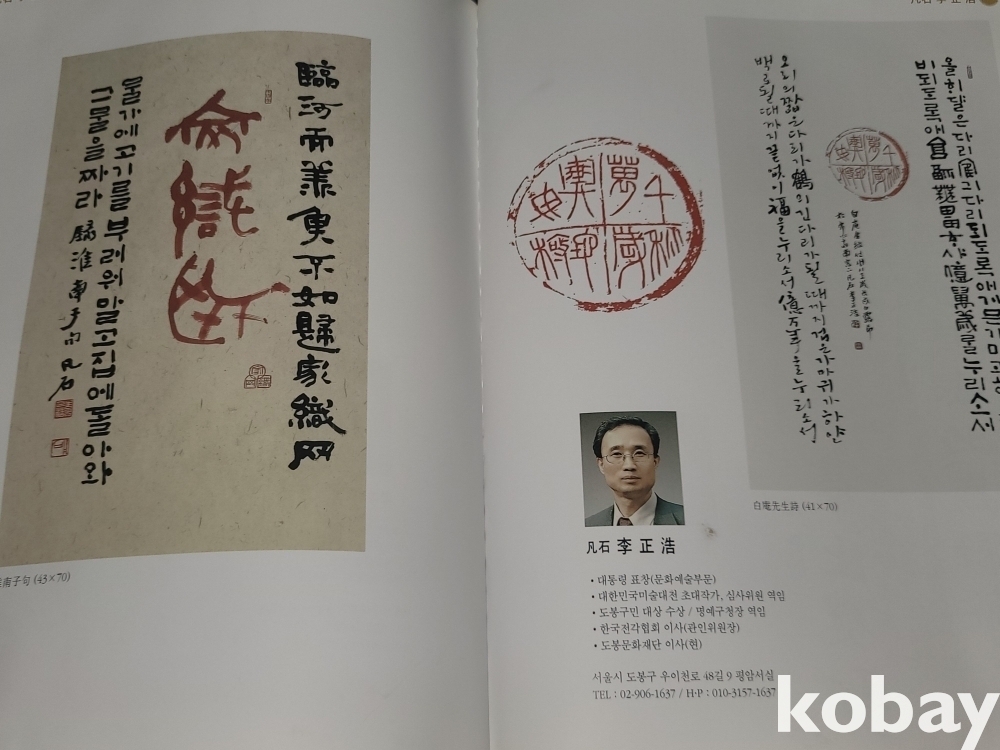 凡石 李正浩
臨河而羨魚不如歸家織网
물가에고기를부러워말고집에돌아와
그물을짜라 錄淮南子句 凡石
南子句 (43×70)
올히달은다리
비되도록애 億萬歲를누리소서
오리의짧은다리가鶴의긴다리가될때까지검은가마귀가하얀
백로될때까지끝없이福을누리소서億万年을누리소서
白庵先生詩 (41×70)
凡石 李正浩
• 대통령 표창(문화예술부문)
• 대한민국미술대전 초대작가, 심사위원 역임
• 도봉구민 대상 수상 / 명예구청장 역임
• 한국전각협회 이사(관인위원장)
• 도봉문화재단 이사(현)
서울시 도봉구 우이천로 48길 9 평암서실
TEL : 02-906-1637 / H·P : 010-3157-1637
kobay